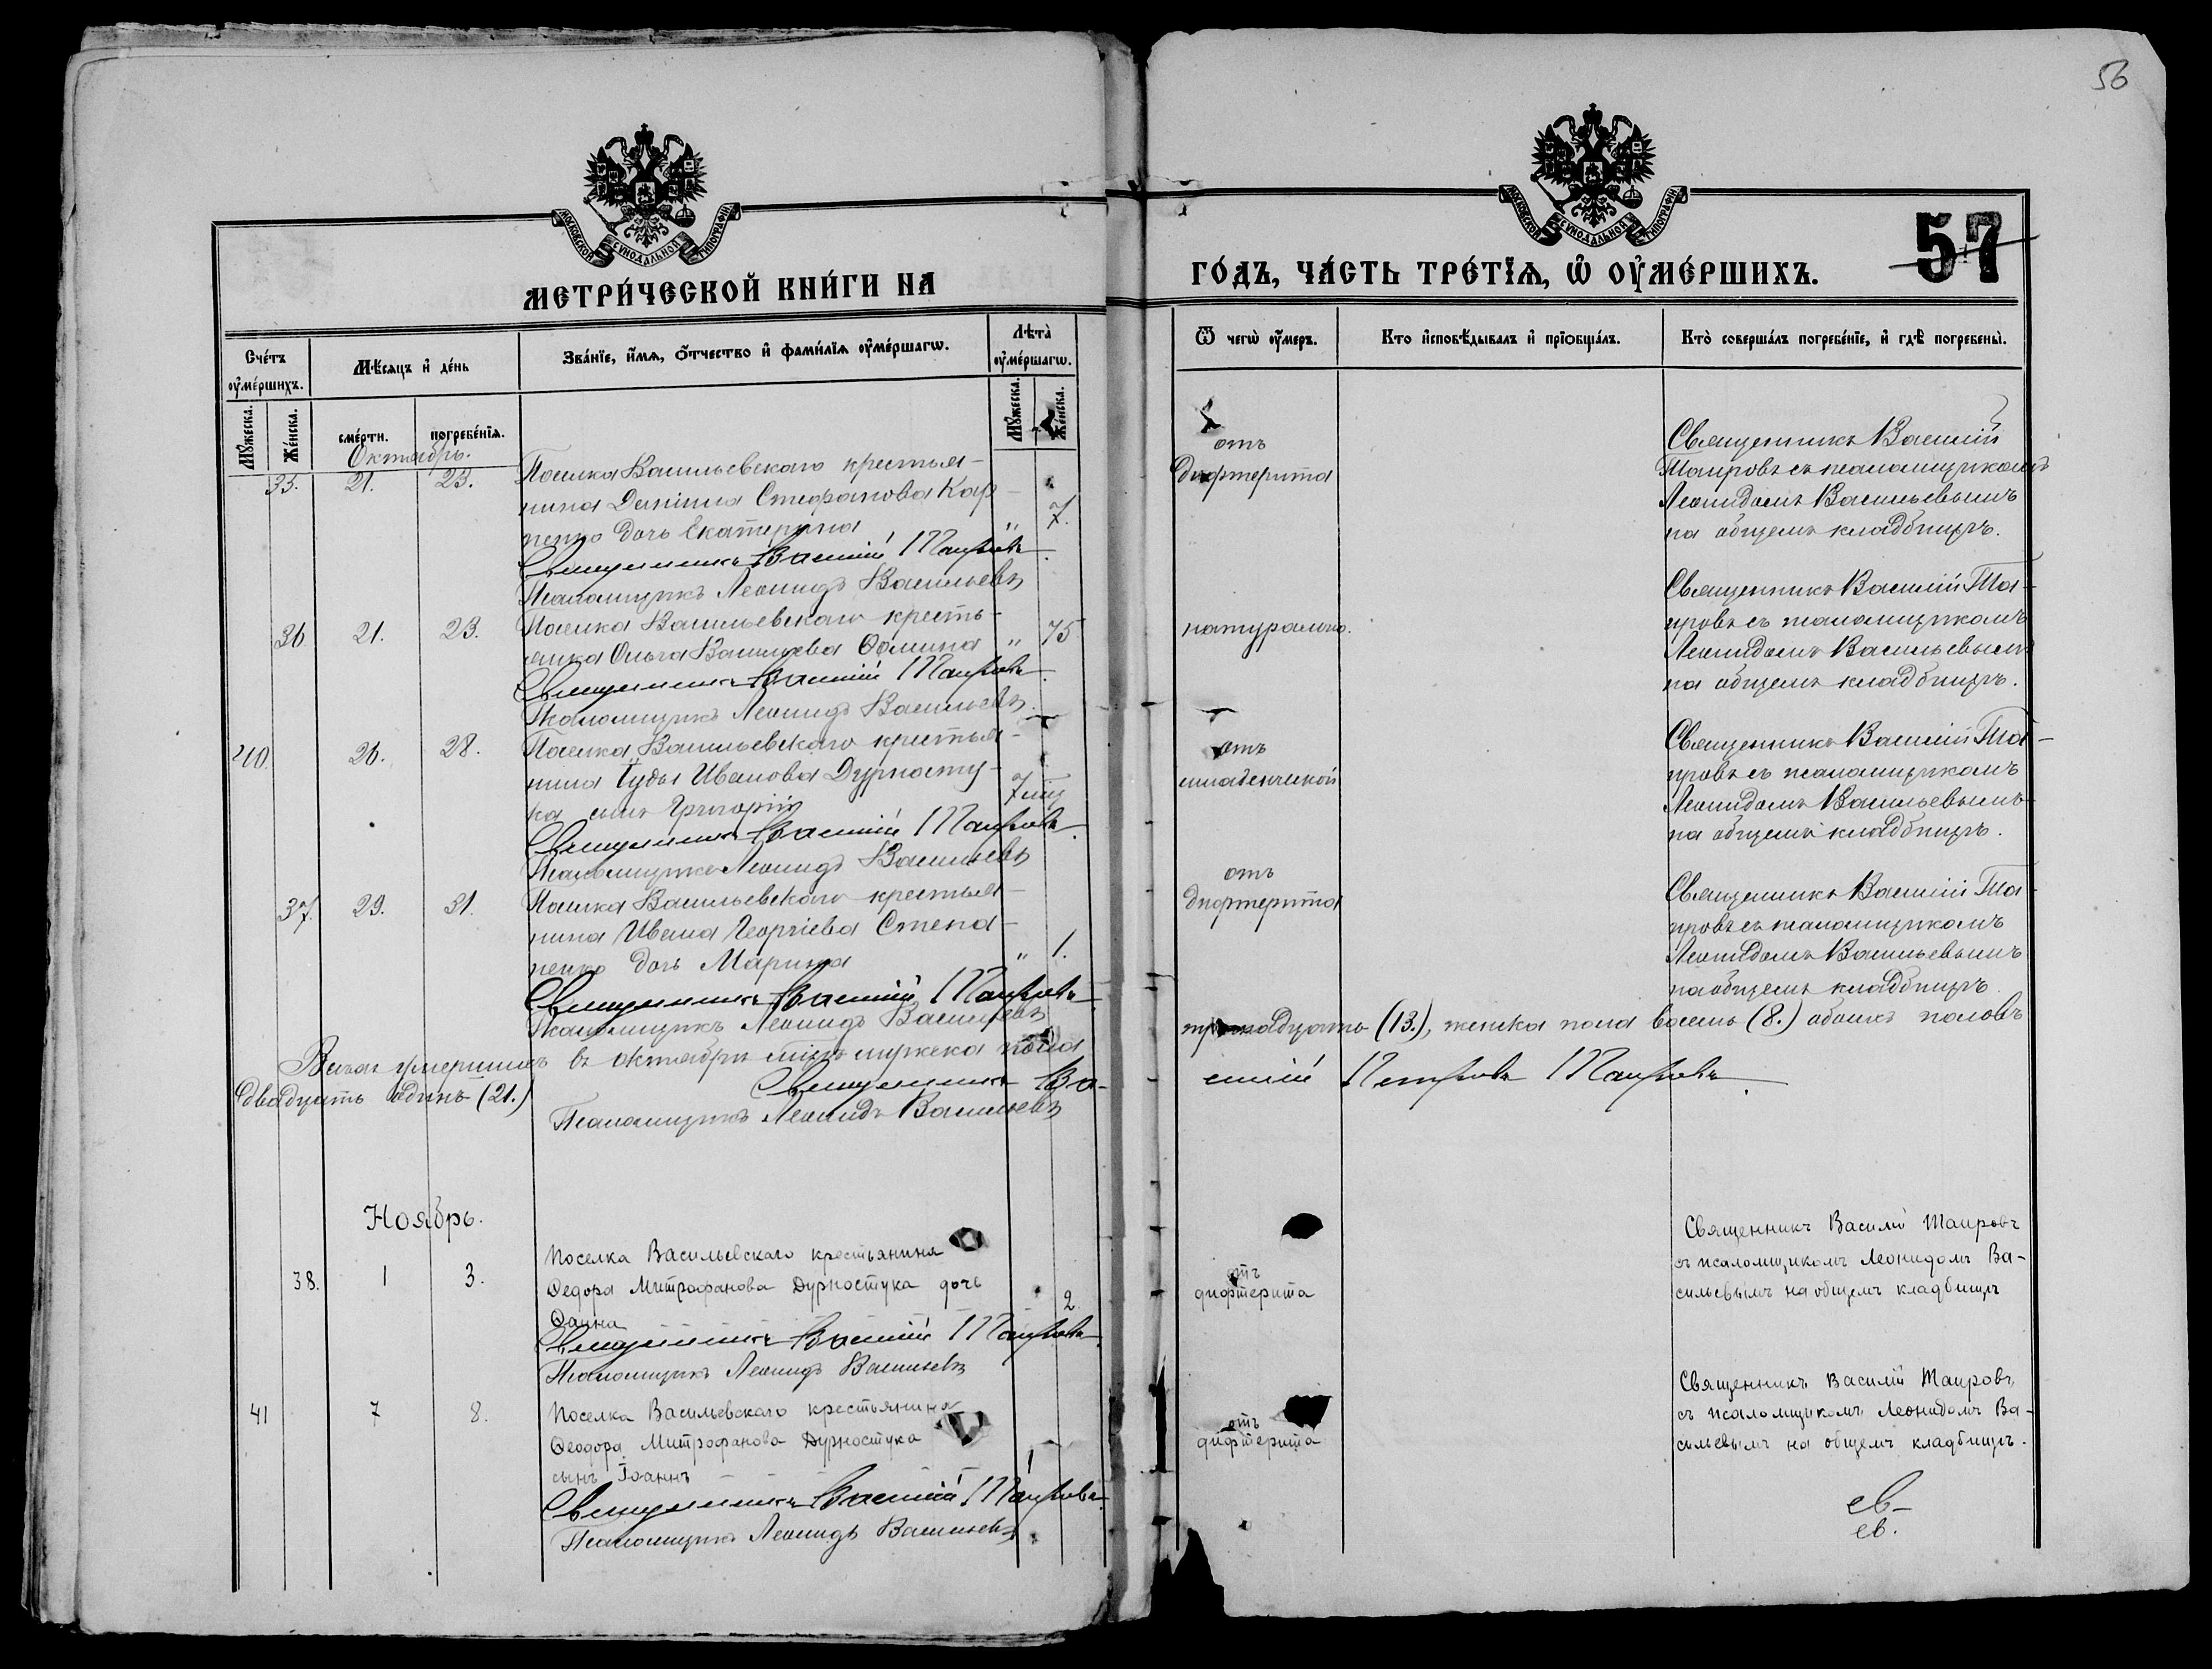 56
МОСКОВСКОЙ СѴНОДАЛЬНОЙ ТИПОГРАФІИ
МОСКОВСКОЙ СѴНОДАЛЬНОЙ ТИПОГРАФІИ
57
МЕТРИ́ЧЕСКОЙ КНИ́ГИ НА
ГО́ДЪ, ЧА́СТЬ ТРЕ́ТІѦ, Ѡ҆ ОУ҆МЕ́РШИХЪ.
Сче́тъ оу҆ме́ршихъ.
Мѣ́сяцъ и҆ де́нь
Зва́нїе, и҆́мѧ, ѻ҆́тчество и҆ фами́лїѧ оу҆ме́ршагѡ.
Лѣта̀ оу҆ме́ршагѡ.
Ѿ чегѡ̀ оу҆́меръ.
Кто и҆сповѣ́дывалъ и҆ прїѻбща́лъ.
Кто̀ соверша́лъ погребе́нїе, и҆ гдѣ̀ погребены̀.
Мꙋ́жеска.
Же́нска.
сме́рти.
погребе́нїѧ.
Мꙋ́жеска.
Же́нска.
Октябрь.
35. 21. 23. Поселка Васильевскаго крестья-
нина Даніила Стефанова Кар-
пенко дочь Екатерина " 7.
Священникъ Василій Таировъ.
Псаломщикъ Леонидъ Васильевъ
отъ
дифтерита
Священникъ Василій
Таировъ съ псаломщикомъ
Леонидомъ Васильевымъ
на общемъ кладбищѣ.
36 21. 23. Поселка Васильевскаго кресть-
янка Ольга Васильева Ѳомина " 75
Священникъ Василій Таировъ.
Псаломщикъ Леонидъ Васильевъ.
натурально.
Священникъ Василій Таи-
ровъ съ псаломщикомъ
Леонидомъ Васильевымъ
на общемъ кладбищѣ.
40 26. 28. Поселка Васильевскаго крестья-
нина Іуды Иванова Дурносту-
ка сынъ Григорій 7 мц
Священникъ Василій Таировъ.
Псаломщикъ Леонидъ Васильевъ
отъ
младенческой
Священникъ Василій Таи-
ровъ съ псаломщикомъ
Леонидомъ Васильевымъ
на общемъ кладбищѣ.
37. 29. 31. Поселка Васильевскаго крестья-
нина Ивана Георгіева Степа-
ненко дочь Марина " 1.
Священникъ Василій Таировъ
Псаломщикъ Леонидъ Васильевъ
отъ
дифтерита
Священникъ Василій Таи-
ровъ съ псаломщикомъ
Леонидомъ Васильевымъ
на общемъ кладбищѣ.
Всѣхъ умершихъ въ октябрѣ мцѣ мужеска пола
тринадцать (13.), женска пола восемь (8.) обоихъ половъ
двадцать одинъ (21.)
Священникъ Ва-
силій Петровъ Таировъ.
Псаломщикъ Леонидъ Васильевъ
Ноябрь.
38. 1 3. Поселка Васильевскаго крестьянина
Ѳедора Митрофанова Дурностука дочь
Ѳаина 2
Священникъ Василій Таировъ.
Псаломщикъ Леонидъ Васильевъ
отъ
дифтерита
Священникъ Василій Таировъ
съ псаломщикомъ Леонидомъ Ва-
сильевымъ на общемъ кладбищѣ
41 7 8. Поселка Васильевскаго крестьянина
Ѳеодора Митрофанова Дурностука
сынъ Іоаннъ 1
Священникъ Василій Таировъ
Псаломщикъ Леонидъ Васильевъ
отъ
дифтерита
Священникъ Василій Таировъ
съ псаломщикомъ Леонидомъ Ва-
сильевымъ на общемъ кладбищѣ.
ев-
ев.